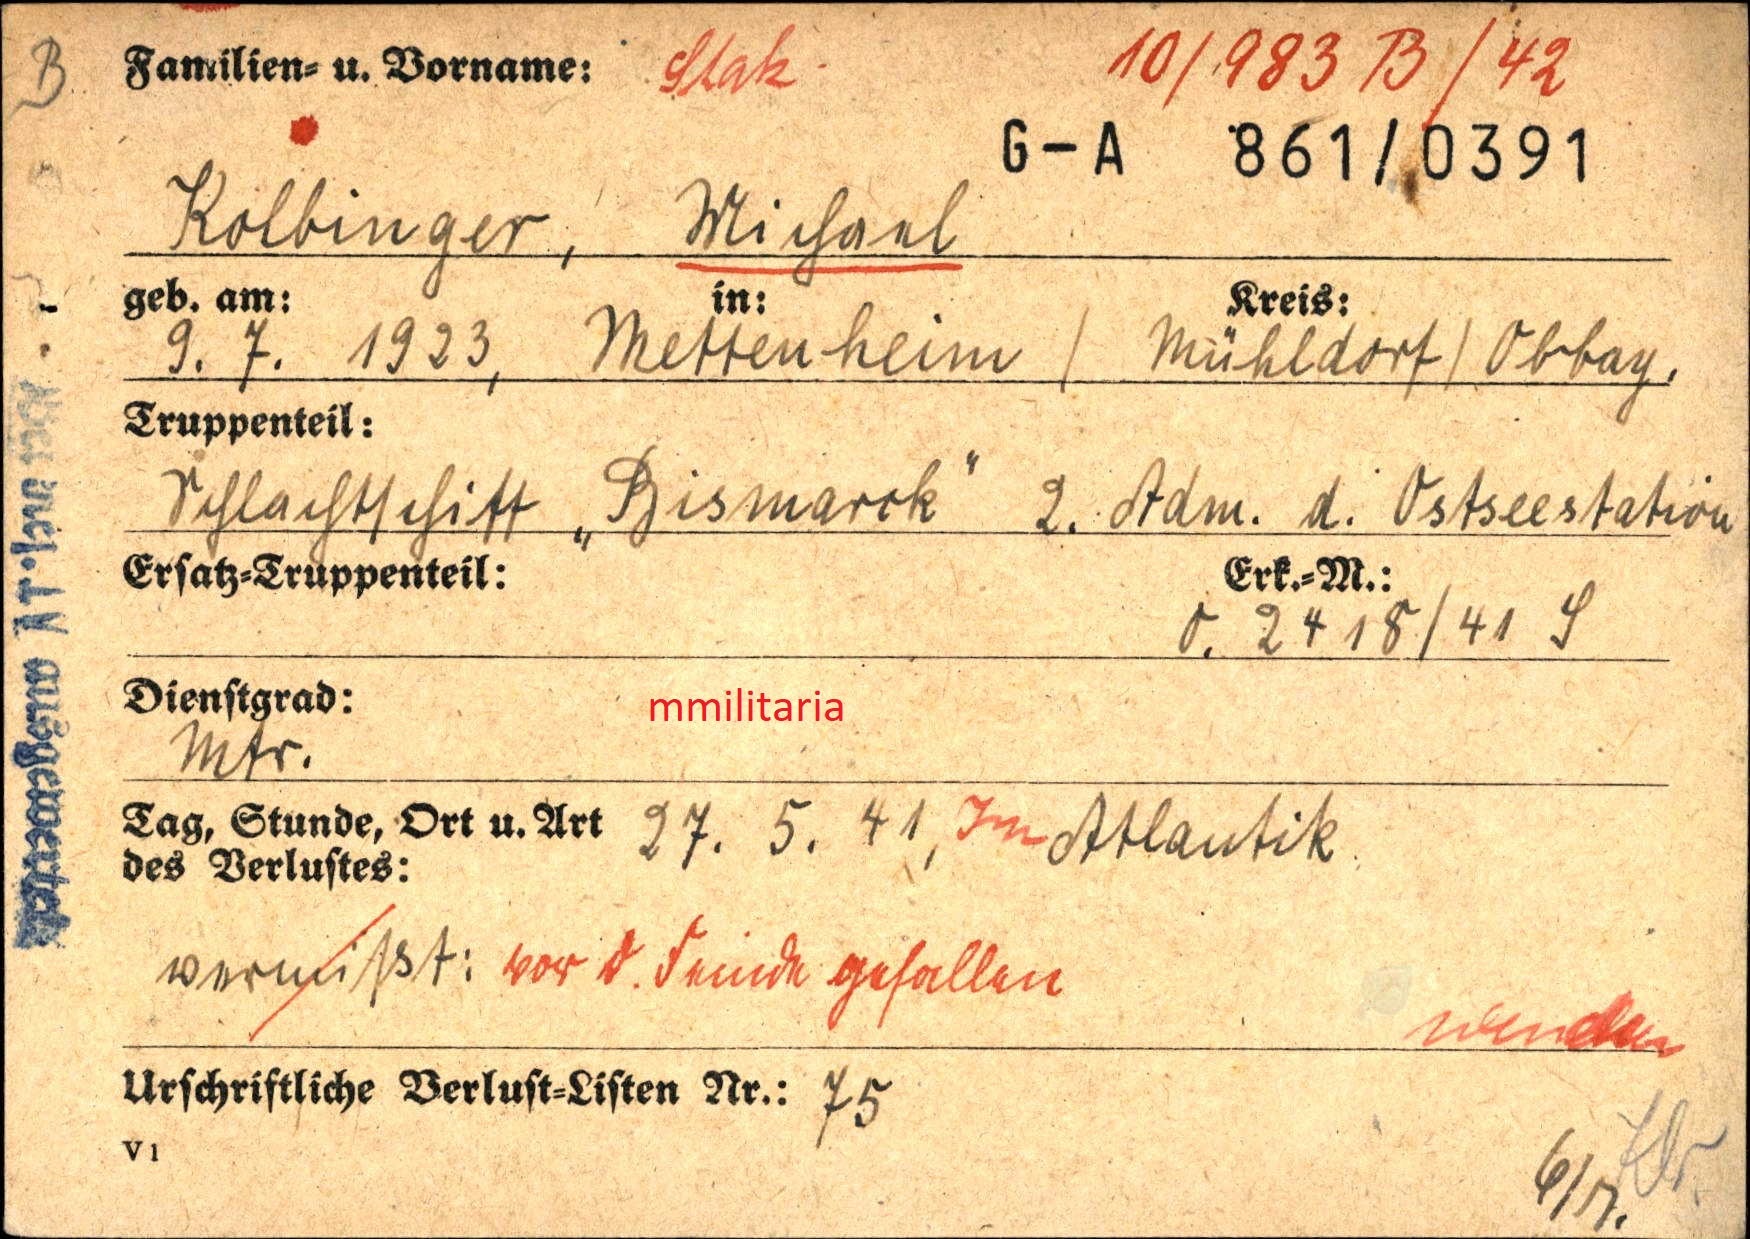 B
Familien- u. Vorname: Stak. 10/983 B/42
G-A 861/0391
Kolbinger, Michael
geb. am: in: Kreis:
9. 7. 1923, Mettenheim / Mühldorf / Obbay.
Truppenteil:
Schlachtschiff „Bismarck“ 2. Adm. d. Ostseestation
Ersatz-Truppenteil: Erk.-M.:
O. 2418/41 S
Dienstgrad:
mmilitaria
Mtr.
Tag, Stunde, Ort u. Art
des Verlustes: 27. 5. 41, Im Atlantik
vermißt: vor d. Feinde gefallen
wenden
Urschriftliche Verlust-Listen Nr.: 75
V 1
ausgewertet